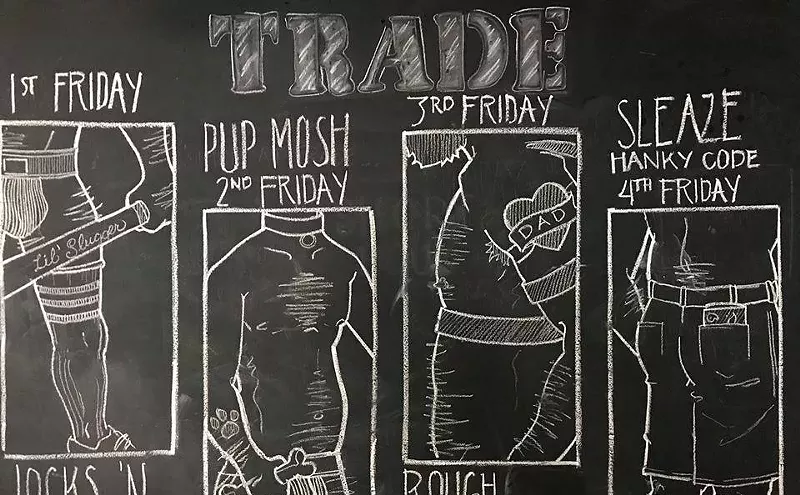 TRADE
1ST FRIDAY
Lil' Slugger
JOCKS 'N
PUP MOSH
2ND FRIDAY
3RD FRIDAY
DAD
ROUGH
SLEAZE
HANKY CODE
4TH FRIDAY